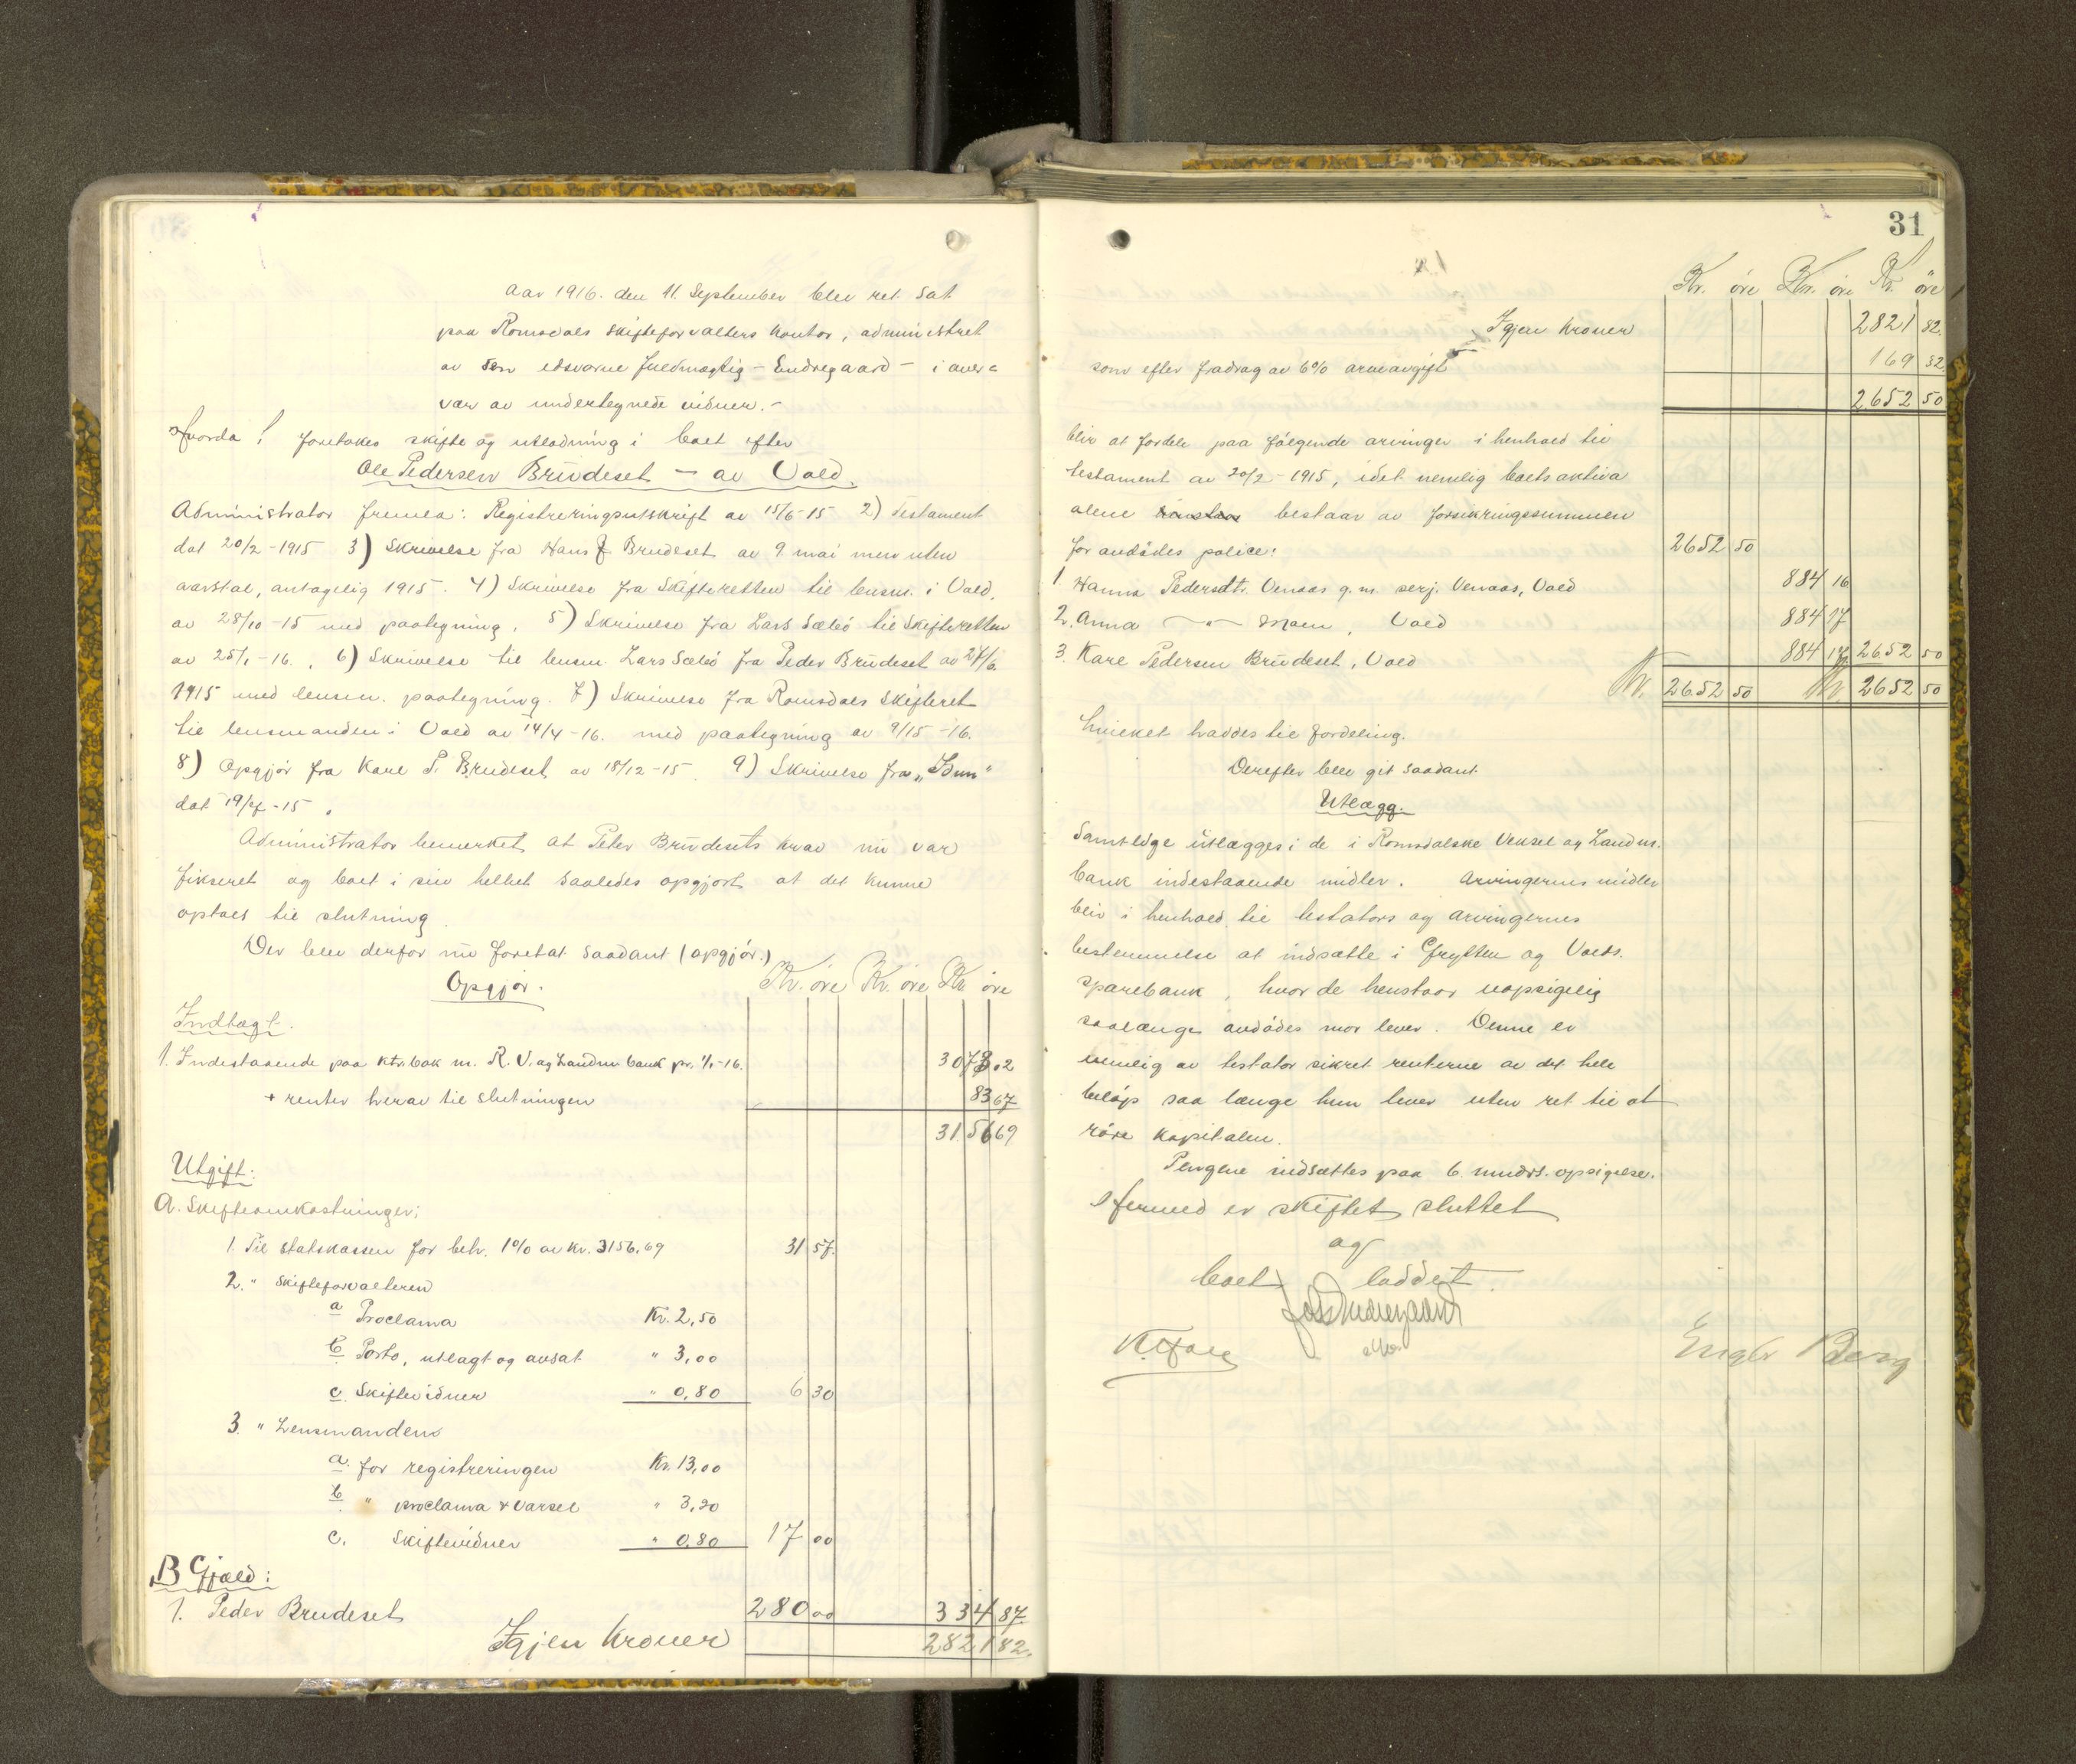 Aar 1916. den 11. September blev ret sat
paa Romsdals skifteforvalters kontor, administret
av den edsvorne fuldmægtig - Endregaard - i over=
vær av undertegnede vidner. -
Hvorda! foretokes skifte og utlodning i boet efter
Ole Pedersen Brudeset - av Vold.
Administrator fremla: Registreringsutskrift av 15/6-15 2) Testament
dat 20/2-1915 3) Skrivelse fra Hans P. Brudeset av 9 mai men uten
aarstal, antagelig 1915. 4) Skrivelse fra Skifteretten til lensm. i Vold.
av 28/10-15 med paategning. 5) Skrivelse fra Lars Sæbö til Skifteretten
av 25/1-16., 6) Skrivelse til lensm Lars Sæbö fra Peder Brudeset av 24/6
1915 med lensm. paategning. 7) Skrivelse fra Romsdals Skifteret
til lensmanden i Vold av 14/4-16. med paategning av 9/15-16.
8) Opgjör fra Kare P. Brudeset av 18/12-15. 9) Skrivelse fra
dat 19/7-15.
Administrator bemerket at Peder Brudesets krav nu var
fikseret og boet i sin helhet saaledes opgjort at det kunne
optaes til slutning.
Der blev derfor nu foretat saadant (opgjör.)
Opgjör. Kr. öre Kr. öre Kr öre
Indtægt.
1. Indestaaende paa ktr. bok m. R. V. og Landm. bank pr. 1/1-16. 3073.02
+ renter herav til slutningen 83 67
3156 69
Utgift:
A. Skifteomkostninger;
1. Til statskassen for beh. 1% av kr. 3156,69 31 57.
2. " skifteforvalteren
a Proclama Kr. 2,50
b. Porto, utlagt og ansat " 3,00
c. Skiftevidner " 0,80 6 30
3. " Lensmanden
a. for registreringen Kr. 13,00
b. " proclama & varsel " 3,20
c. Skiftevidner " 0,80 17 00
B Gjæld:
1. Peder Brudeset 280 00 334 87
Igjen Kroner 2821 82.
31
Kr. öre Kr. öre Kr. öre
Igjen Kroner 2821 82.
som efter fradrag av 6% arveavgift 169 32
2652 50
blir at fordele paa fölgende arvinger i henhold til
testament av 20/2-1915, idet nemlig boets aktiva
alene bestaar av forsikringssummen
for avdödes police: 2652 50
1. Hanna Pedersdtr. Venaas g. m. serj. Venaas, Vold 884 16
2. Anna - " - , Vold 884 17
3. Kare Pedersen Brudeset, Vold 884 17 2652 50
Kr. 2652 50 Kr. 2652 50
hvilket haddes til fordeling.
Derefter blev git saadant
Utlægg.
Samtlige utlægges i de i Romsdalske Veksel og Landm.
bank indestaaende midler. Arvingernes midler
blir i henhold til testators og arvingernes
bestemmelse at indsætte i Grytten og Volds.
sparebank, hvor de henstaar uopsigelig
saalænge avdödes mor lever. Denne er
nemlig av testator sikret renterne av det hele
belöp saa længe hun lever uten ret til at
röre kapitalen.
Pengene indsættes paa 6 mndrs. opsigelse.
Hermed er skiftet sluttet
og
boet loddet.
Engbr Berg